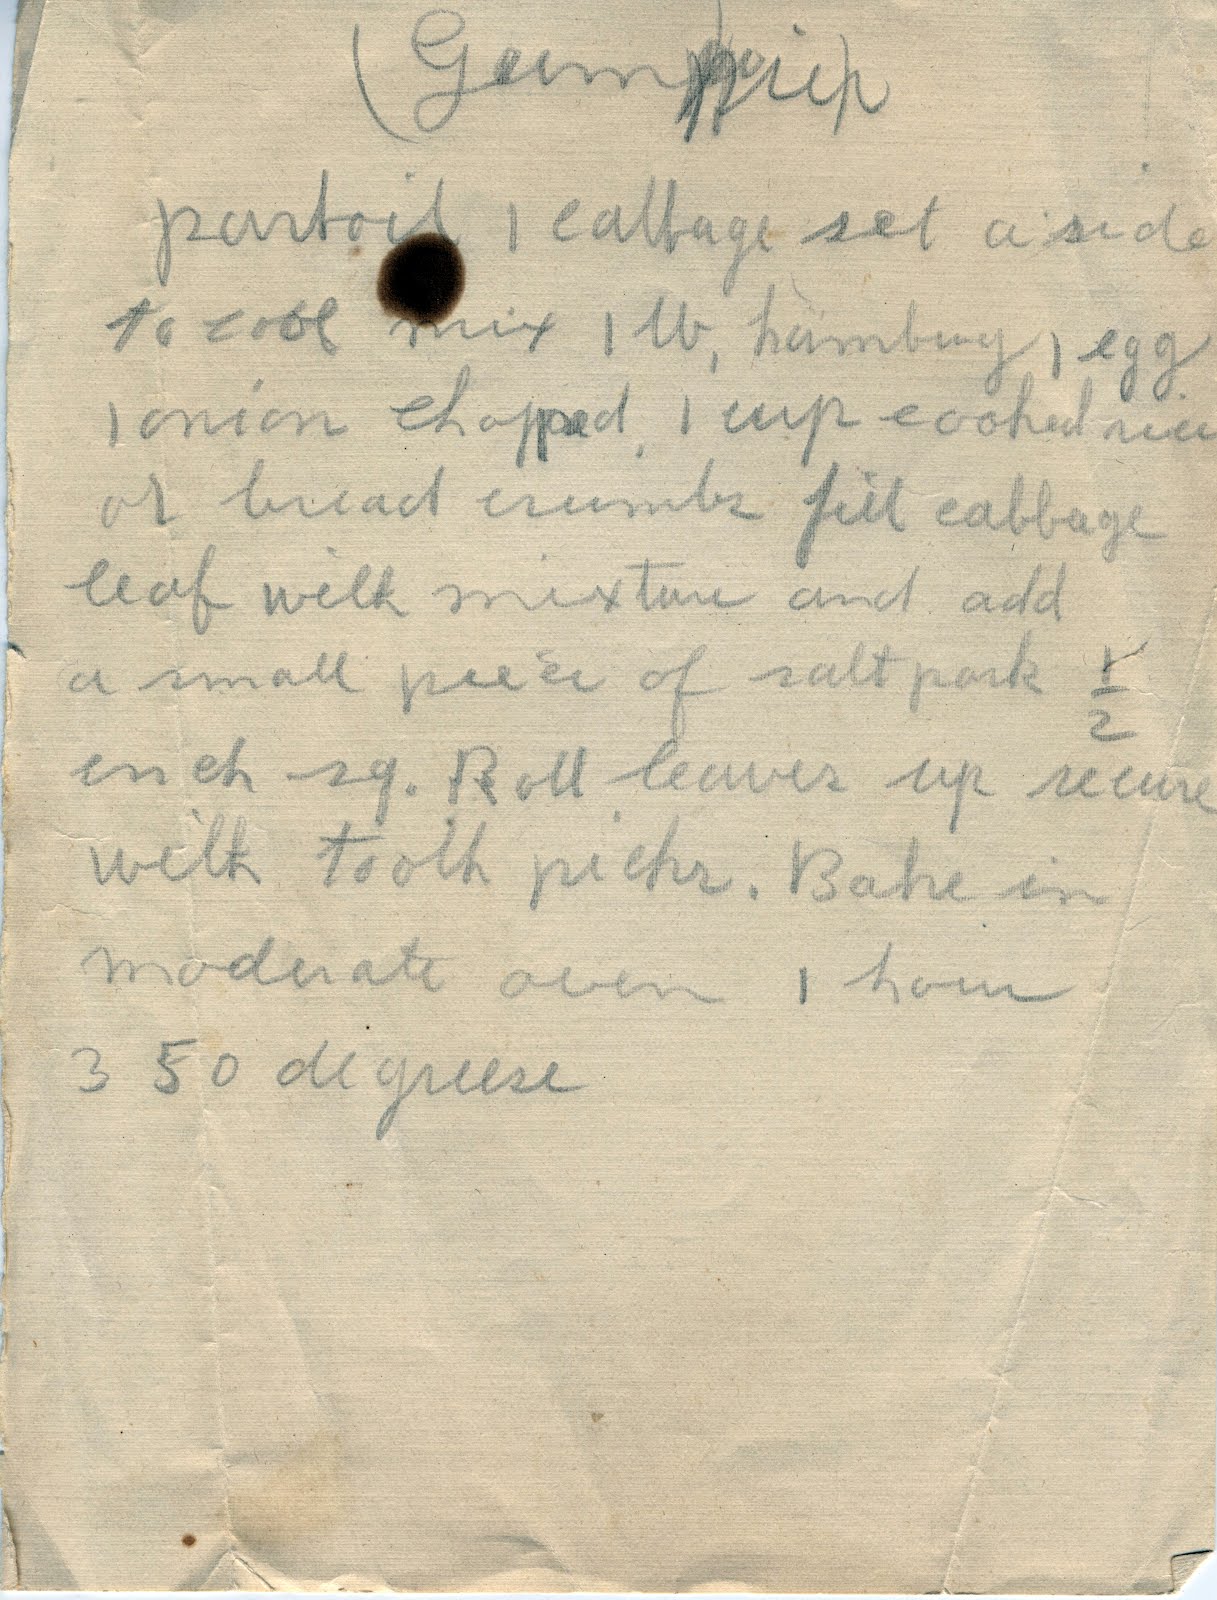 parboil 1 cabbage set aside
to cool mix 1 lb, hamburg, 1 egg
1 onion chopped, 1 cup cooked rice
or bread crumbs fill cabbage
leaf with mixture and add
a small peece of salt pork 1/2
inch sq. Roll leaves up secure
with tooth picks. Bake in
moderate oven 1 hour
350 degreese